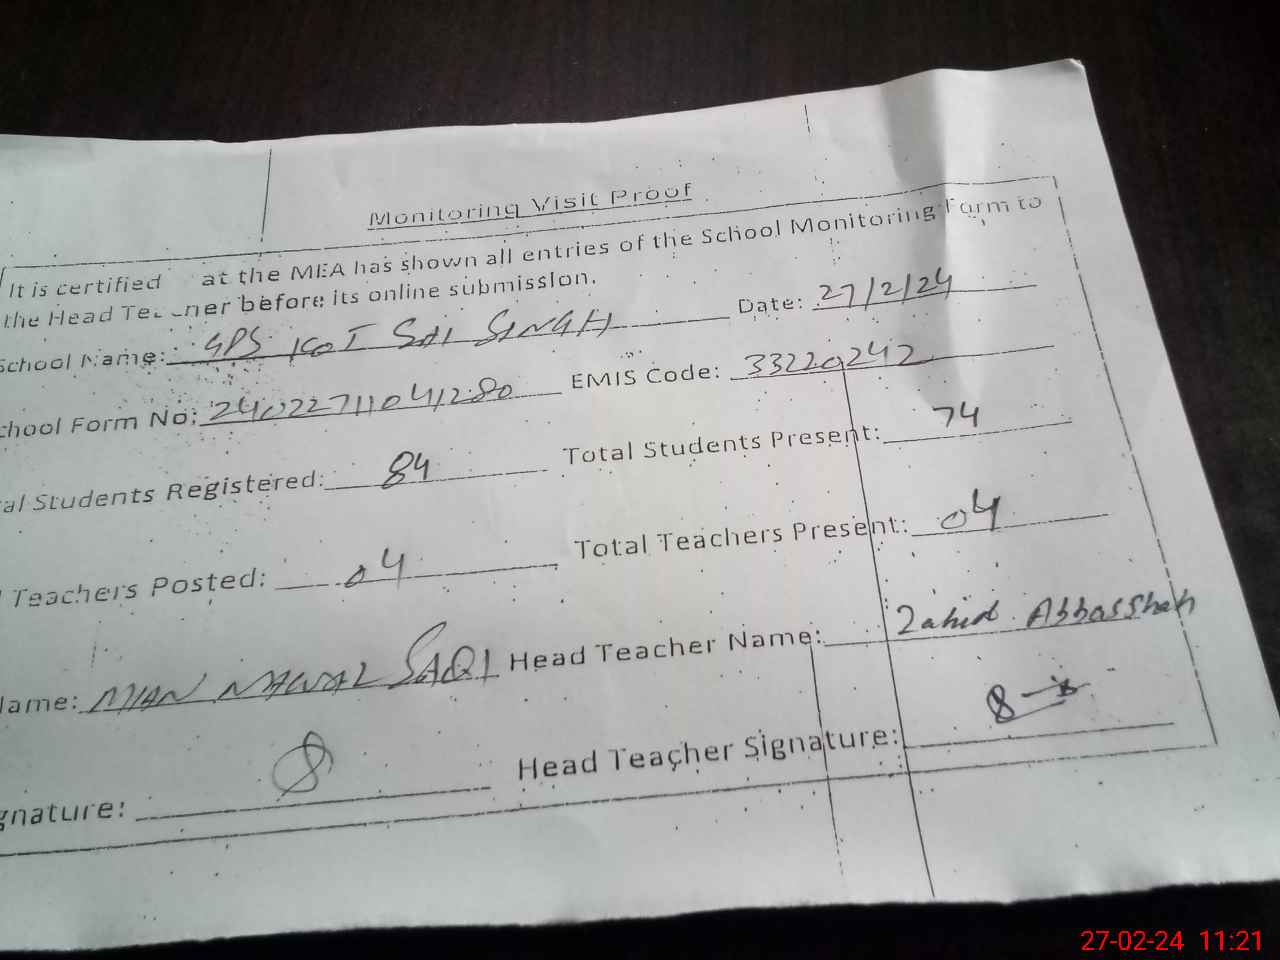 Monitoring Visit Proof
It is certified at the MEA has shown all entries of the School Monitoring Form to
the Head Te ner before its online submission.
School Name: GPS KOT SAI SINGH Date: 27/2/24
chool Form No: 24022711041280 EMIS Code: 33220242
al Students Registered: 84 Total Students Present: 74
Teachers Posted: 04 Total Teachers Present: 04
Name: MIAN NAWAL SAQI Head Teacher Name: Zahid Abbas Shah
gnature: Head Teacher Signature:
27-02-24 11:21